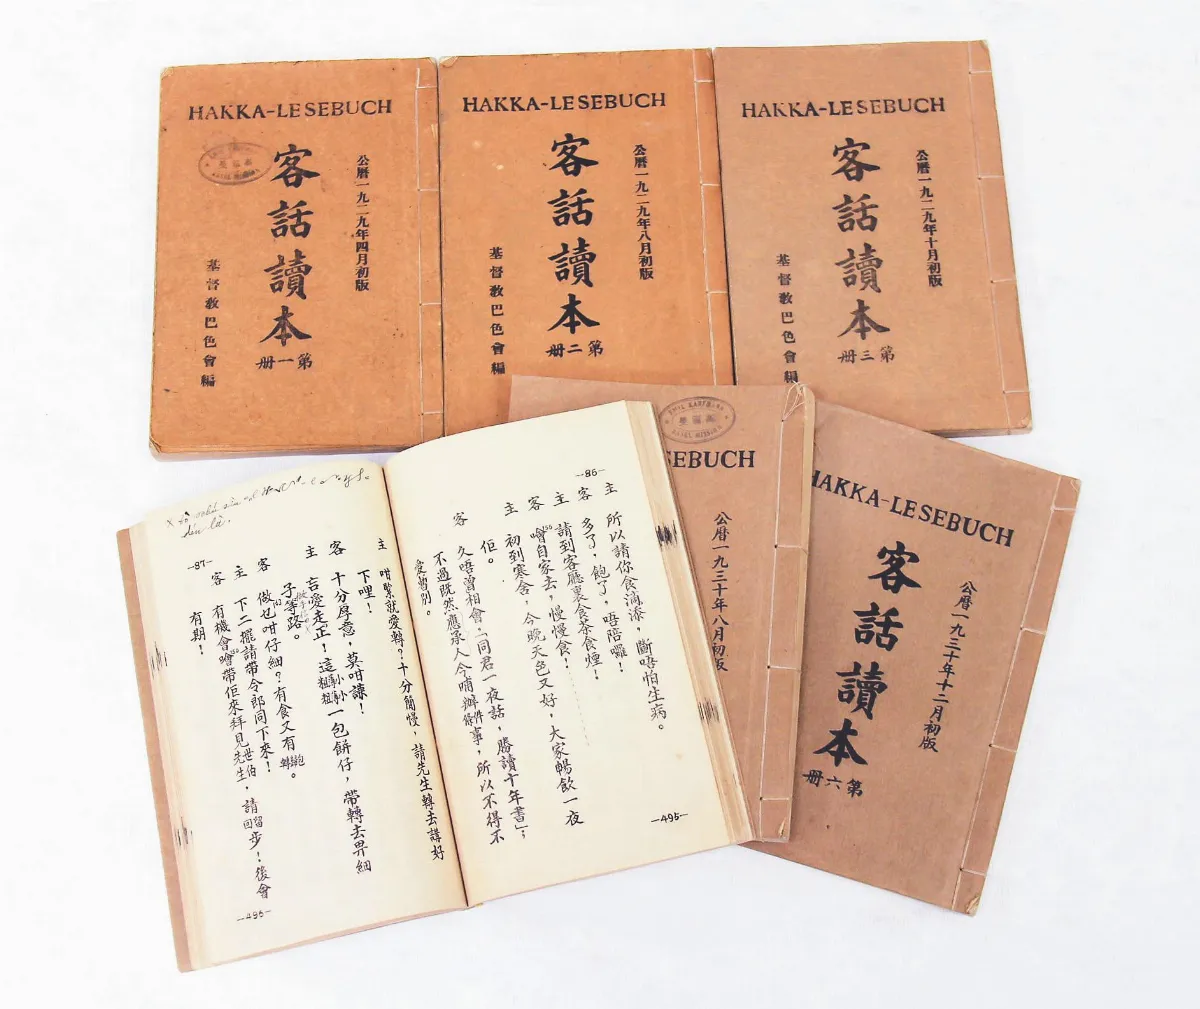 HAKKA-LESEBUCH
公曆一九二九年四月初版
客話讀本
第一冊
基督教巴色會編
HAKKA-LESEBUCH
公曆一九二九年八月初版
客話讀本
第二冊
基督教巴色會編
HAKKA-LESEBUCH
公曆一九二九年十月初版
客話讀本
第三冊
基督教巴色會編
EBUCH
公曆一九三十年八月初版
HAKKA-LESEBUCH
公曆一九三十年十二月初版
客話讀本
第六冊
—86—
主 所以請你食淌添，斷唔怕生病。
客 多了，飽了，唔陪囉！
主 請到客廳裏食茶食煙！
客 噲自家去，慢慢食！
主 初到寒舍，今晚天色又好，大家暢飲一夜
佢。
客 久唔曾相會，「同君一夜話，勝讀十年書」；
不過既然應承人今晡辦件事，所以不得不
愛曾別。
—495—
—87—
主 咁緊就愛轉？十分簡慢，請先生轉去講好
下哩！
客 十分厚意，莫咁謙！
主 言愛走正！這一包餅仔，帶轉去畀細
子等路。
客 做乜咁仔細？有食又有
主 下二擺請帶令郎同下來！
客 有機會噲帶佢來拜見世伯先生，請留步！後會
有期！
—496—